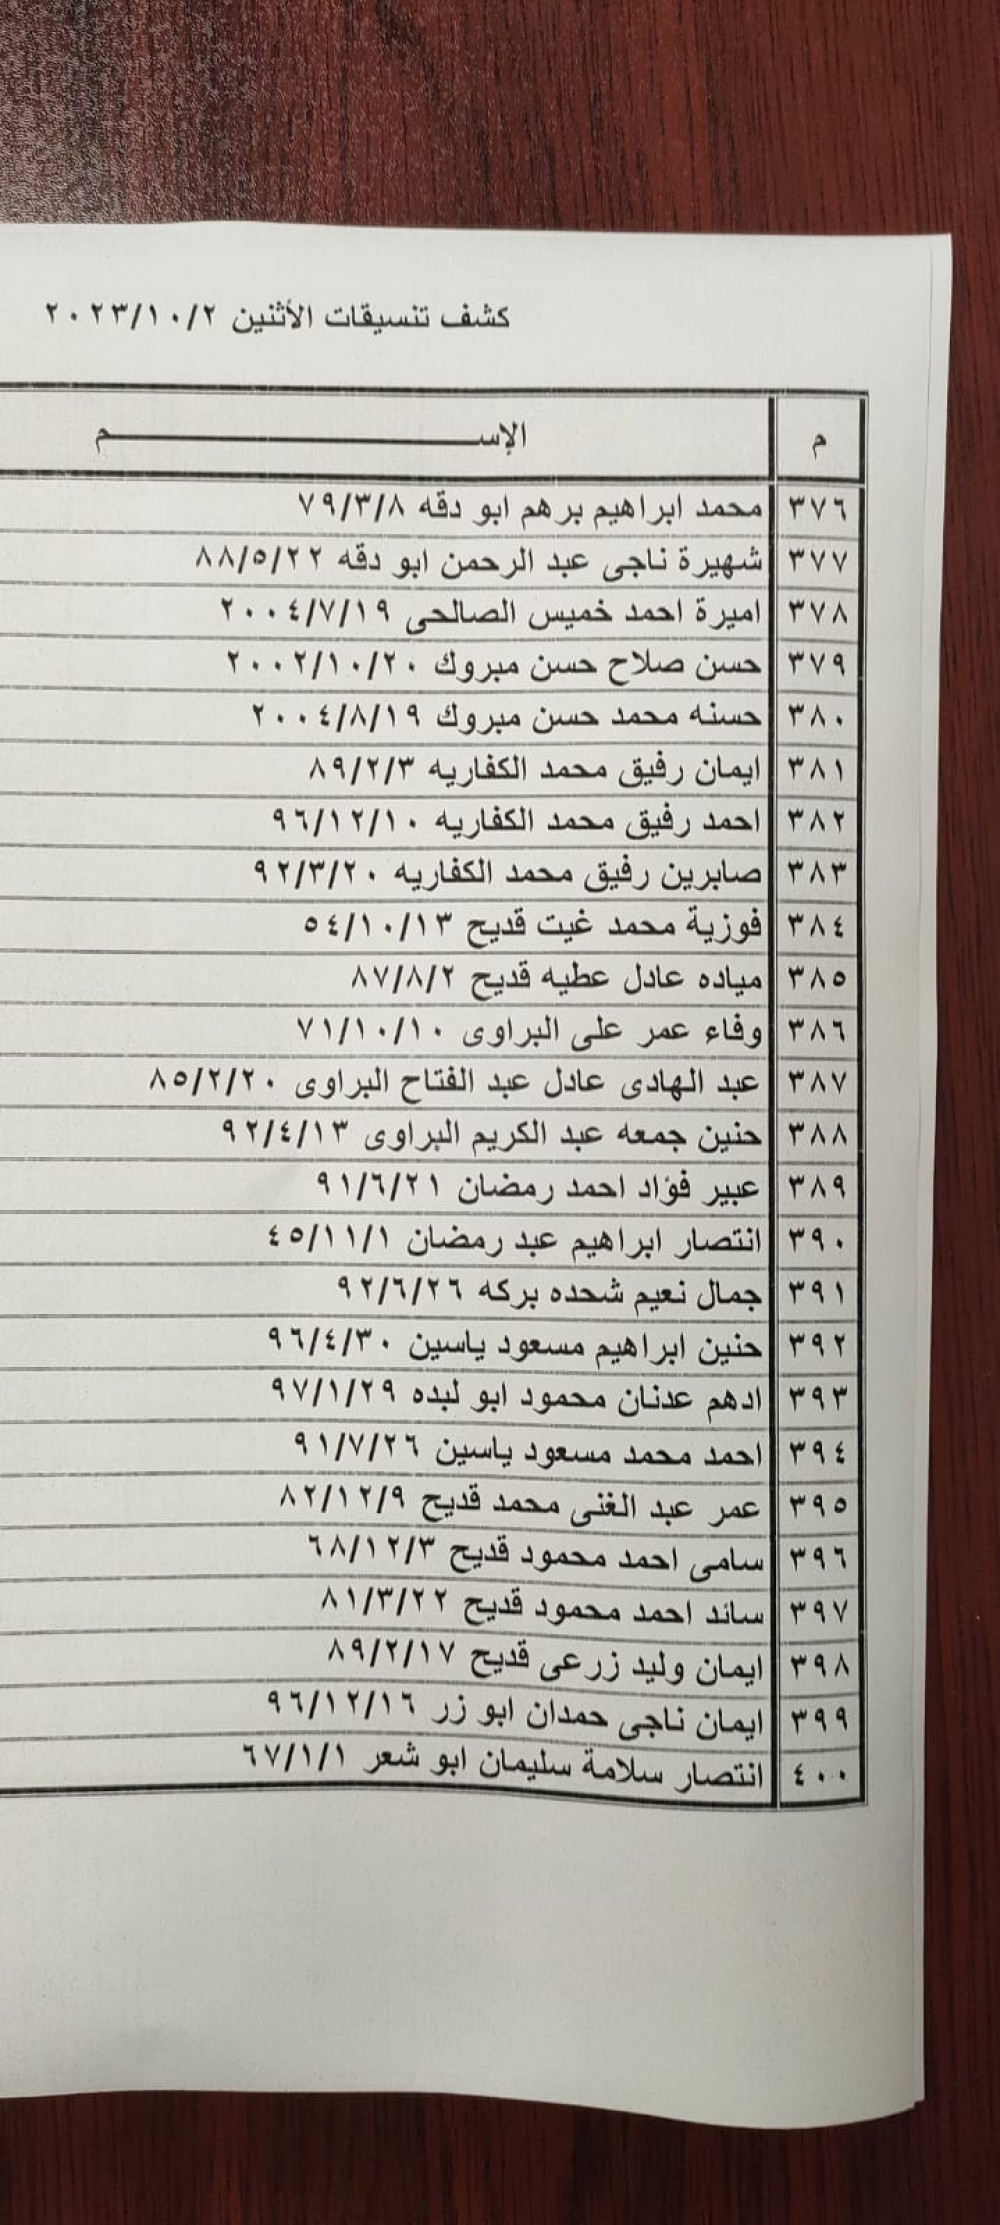 كشف تنسيقات الأثنين ٢٠٢٣/١٠/٢
م الإســـــــــــــــم
٣٧٦ محمد ابراهيم برهم ابو دقه ٧٩/٣/٨
٣٧٧ شهيرة ناجى عبد الرحمن ابو دقه ٨٨/٥/٢٢
٣٧٨ اميرة احمد خميس الصالحى ٢٠٠٤/٧/١٩
٣٧٩ حسن صلاح حسن مبروك ٢٠٠٢/١٠/٢٠
٣٨٠ حسنه محمد حسن مبروك ٢٠٠٤/٨/١٩
٣٨١ ايمان رفيق محمد الكفاريه ٨٩/٢/٣
٣٨٢ احمد رفيق محمد الكفاريه ٩٦/١٢/١٠
٣٨٣ صابرين رفيق محمد الكفاريه ٩٢/٣/٢٠
٣٨٤ فوزية محمد غيت قديح ٥٤/١٠/١٣
٣٨٥ مياده عادل عطيه قديح ٨٧/٨/٢
٣٨٦ وفاء عمر على البراوى ٧١/١٠/١٠
٣٨٧ عبد الهادى عادل عبد الفتاح البراوى ٨٥/٢/٢٠
٣٨٨ حنين جمعه عبد الكريم البراوى ٩٢/٤/١٣
٣٨٩ عبير فؤاد احمد رمضان ٩١/٦/٢١
٣٩٠ انتصار ابراهيم عبد رمضان ٤٥/١١/١
٣٩١ جمال نعيم شحده بركه ٩٢/٦/٢٦
٣٩٢ حنين ابراهيم مسعود ياسين ٩٦/٤/٣٠
٣٩٣ ادهم عدنان محمود ابو لبده ٩٧/١/٢٩
٣٩٤ احمد محمد مسعود ياسين ٩١/٧/٢٦
٣٩٥ عمر عبد الغنى محمد قديح ٨٢/١٢/٩
٣٩٦ سامى احمد محمود قديح ٦٨/١٢/٣
٣٩٧ سائد احمد محمود قديح ٨١/٣/٢٢
٣٩٨ ايمان وليد زرعى قديح ٨٩/٢/١٧
٣٩٩ ايمان ناجى حمدان ابو زر ٩٦/١٢/١٦
٤٠٠ انتصار سلامة سليمان ابو شعر ٦٧/١/١